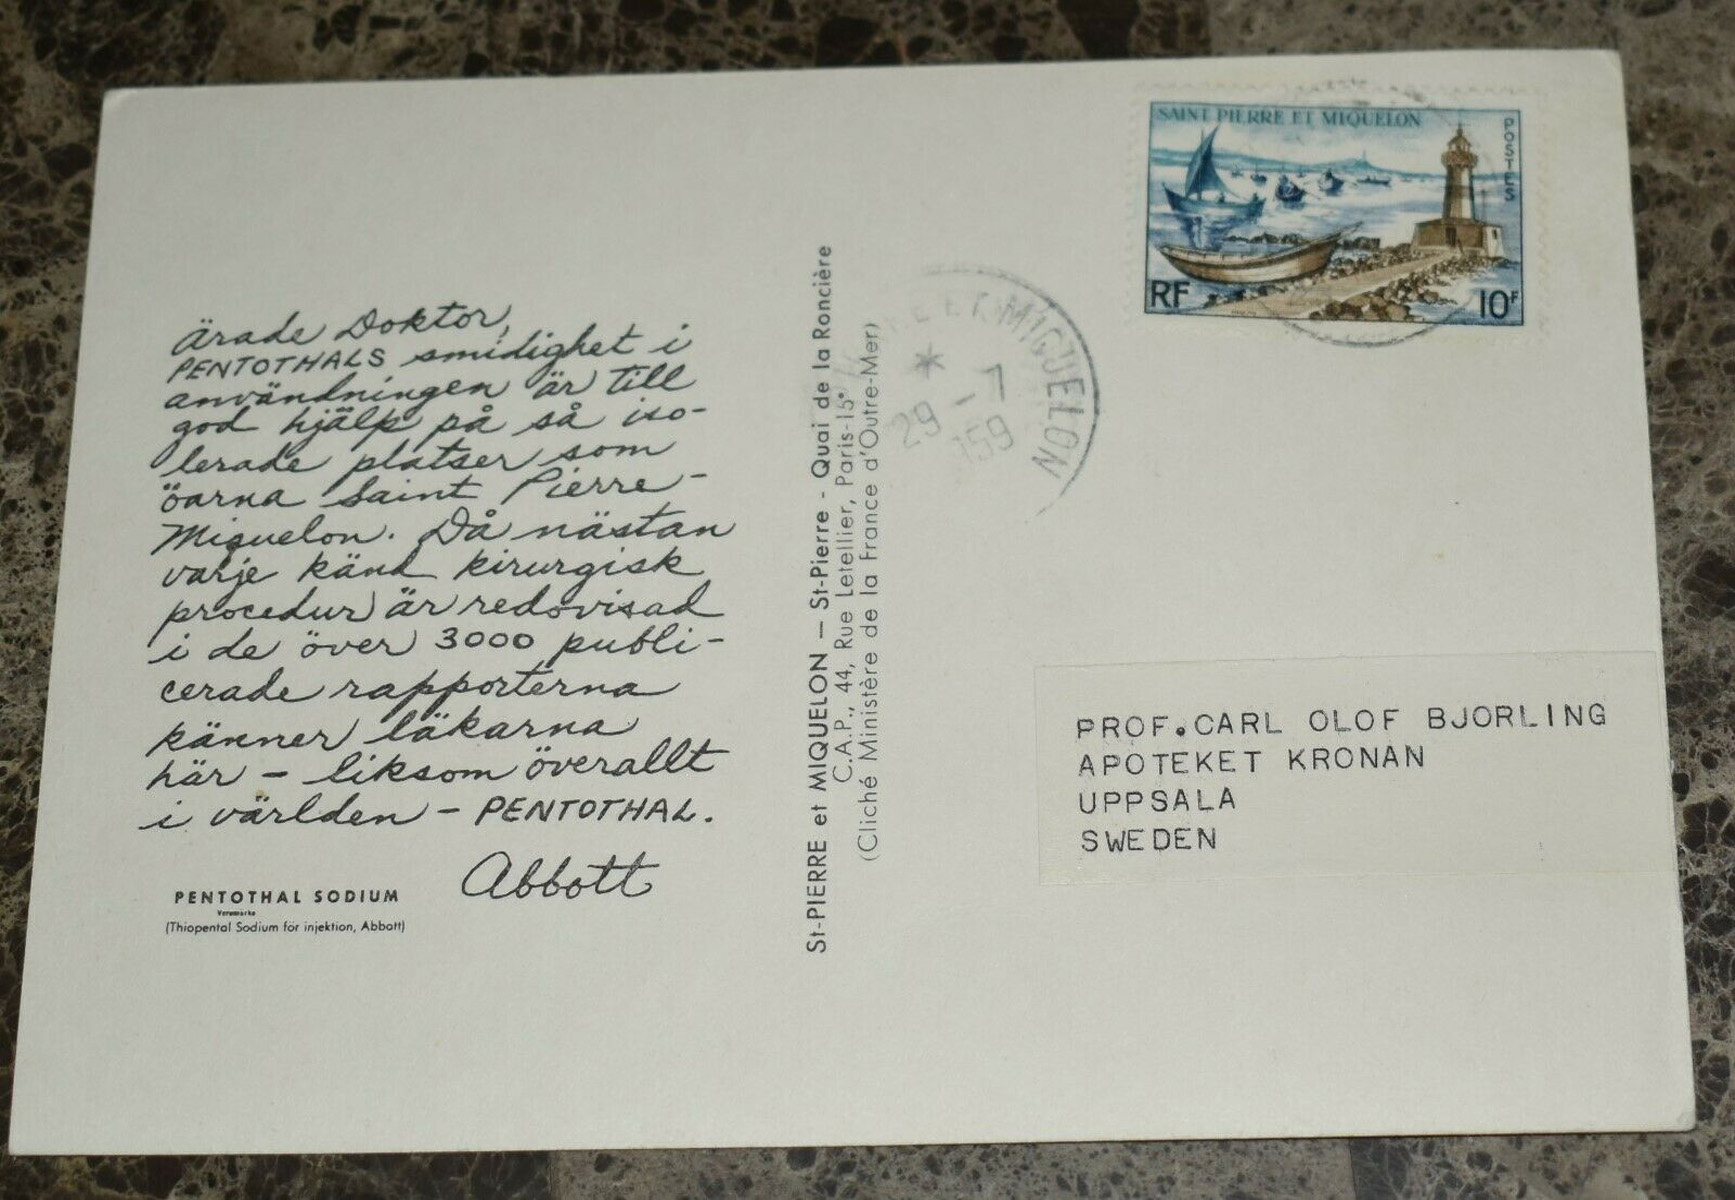 Ärade Doktor,
PENTOTHALS smidighet i
användningen är till
god hjälp på så iso-
lerade platser som
öarna Saint Pierre-
Miquelon. Då nästan
varje känd kirurgisk
procedur är redovisad
i de över 3000 publi-
cerade rapporterna
känner läkarna
här - liksom överallt
i världen - PENTOTHAL.
Abbott
PENTOTHAL SODIUM
Varumärke
(Thiopental Sodium för injektion, Abbott)
St-PIERRE et MIQUELON — St-Pierre - Quai de la Roncière
C.A.P., 44, Rue Letellier, Paris-15e
(Cliché Ministère de la France d'Outre-Mer)
ET MIQUELON
29 -7
159
SAINT PIERRE ET MIQUELON
POSTES
RF
10F
PROF.CARL OLOF BJORLING
APOTEKET KRONAN
UPPSALA
SWEDEN